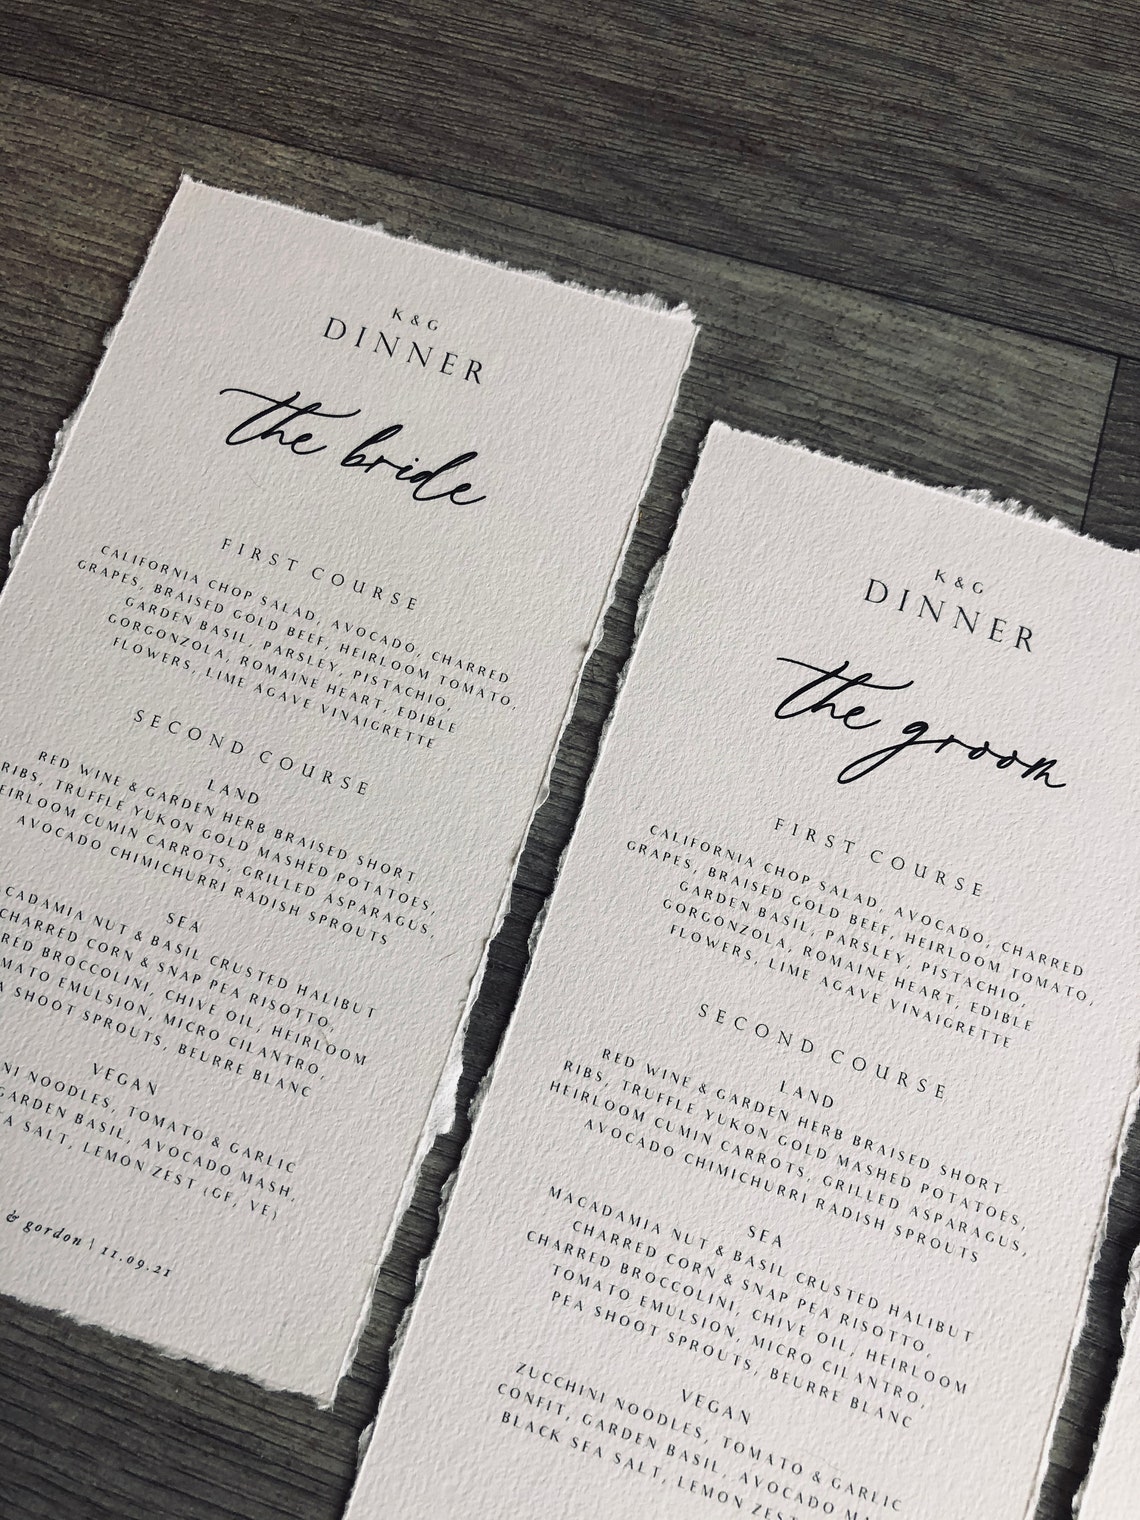 K & G
DINNER
the bride
FIRST COURSE
CALIFORNIA CHOP SALAD, AVOCADO, CHARRED
GRAPES, BRAISED GOLD BEEF, HEIRLOOM TOMATO,
GARDEN BASIL, PARSLEY, PISTACHIO,
GORGONZOLA, ROMAINE HEART, EDIBLE
FLOWERS, LIME AGAVE VINAIGRETTE
SECOND COURSE
LAND
RED WINE & GARDEN HERB BRAISED SHORT
RIBS, TRUFFLE YUKON GOLD MASHED POTATOES,
EIRLOOM CUMIN CARROTS, GRILLED ASPARAGUS,
AVOCADO CHIMICHURRI RADISH SPROUTS
SEA
CADAMIA NUT & BASIL CRUSTED HALIBUT
CHARRED CORN & SNAP PEA RISOTTO,
RED BROCCOLINI, CHIVE OIL, HEIRLOOM
MATO EMULSION, MICRO CILANTRO,
A SHOOT SPROUTS, BEURRE BLANC
VEGAN
NI NOODLES, TOMATO & GARLIC
GARDEN BASIL, AVOCADO MASH,
A SALT, LEMON ZEST (GF, VE)
& gordon | 11.09.21
K & G
DINNER
the groom
FIRST COURSE
CALIFORNIA CHOP SALAD, AVOCADO, CHARRED
GRAPES, BRAISED GOLD BEEF, HEIRLOOM TOMATO,
GARDEN BASIL, PARSLEY, PISTACHIO,
GORGONZOLA, ROMAINE HEART, EDIBLE
FLOWERS, LIME AGAVE VINAIGRETTE
SECOND COURSE
LAND
RED WINE & GARDEN HERB BRAISED SHORT
RIBS, TRUFFLE YUKON GOLD MASHED POTATOES,
HEIRLOOM CUMIN CARROTS, GRILLED ASPARAGUS,
AVOCADO CHIMICHURRI RADISH SPROUTS
SEA
MACADAMIA NUT & BASIL CRUSTED HALIBUT
CHARRED CORN & SNAP PEA RISOTTO,
CHARRED BROCCOLINI, CHIVE OIL, HEIRLOOM
TOMATO EMULSION, MICRO CILANTRO,
PEA SHOOT SPROUTS, BEURRE BLANC
VEGAN
ZUCCHINI NOODLES, TOMATO & GARLIC
CONFIT, GARDEN BASIL, AVOCADO MA
BLACK SEA SALT, LEMON ZES